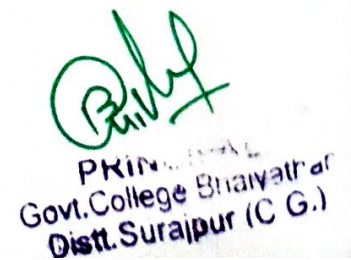 PRINCIPAL
Govt.College Bhaiyathan
Distt.Surajpur (C G.)